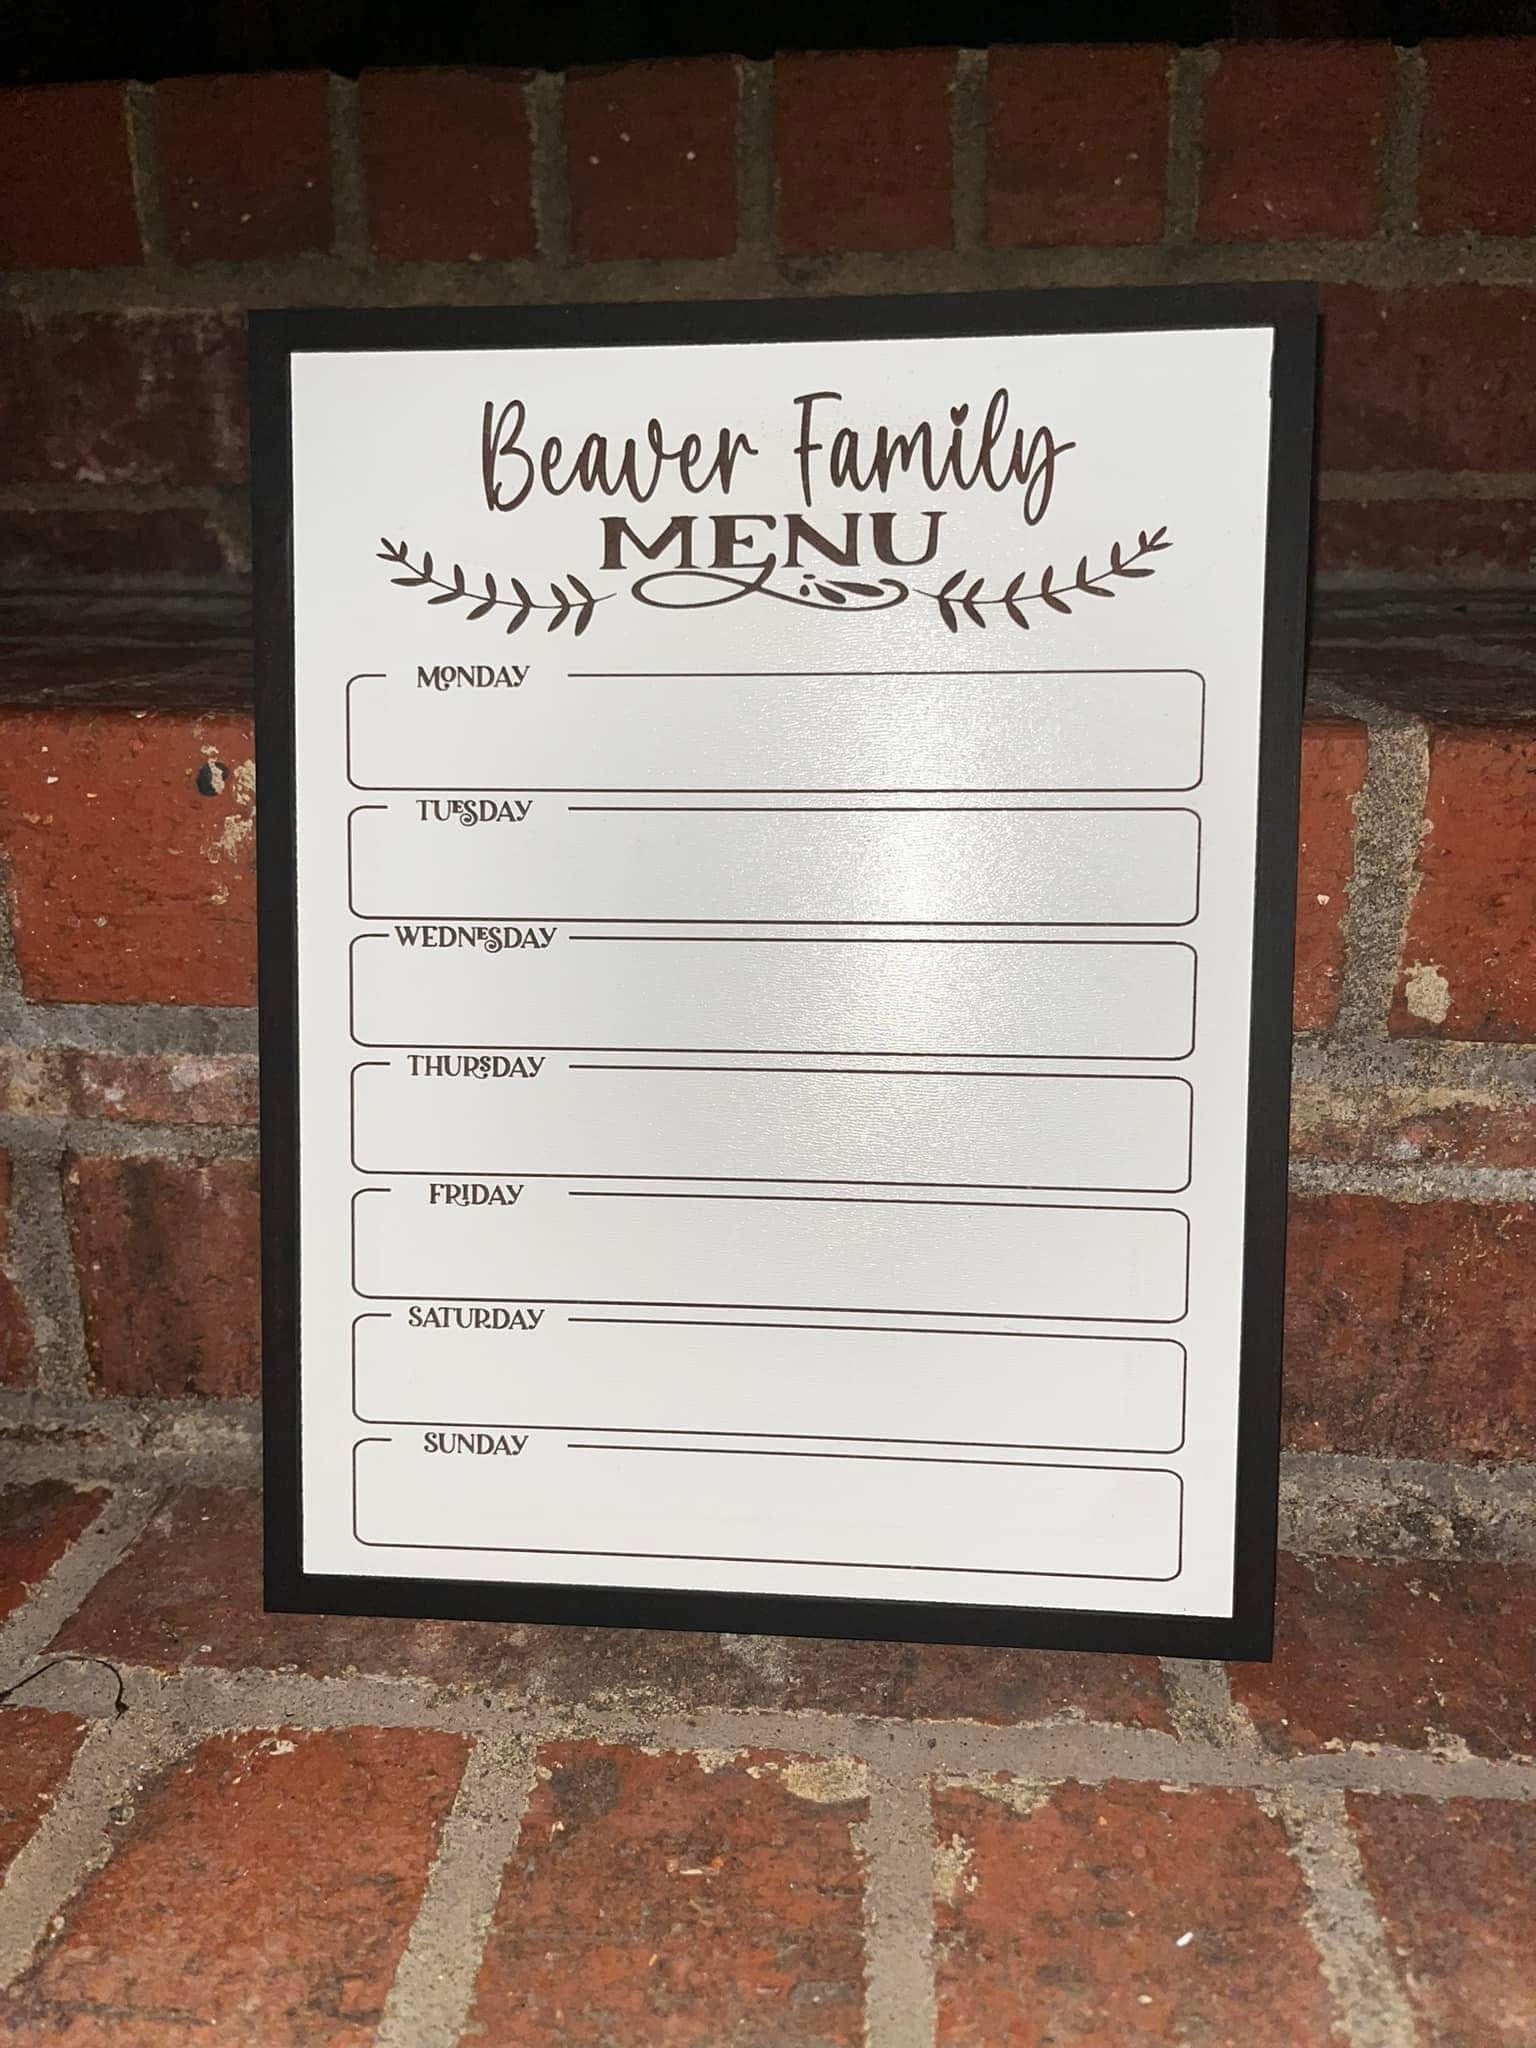 Beaver Family
MENU
MONDAY
TUESDAY
WEDNESDAY
THURSDAY
FRIDAY
SATURDAY
SUNDAY